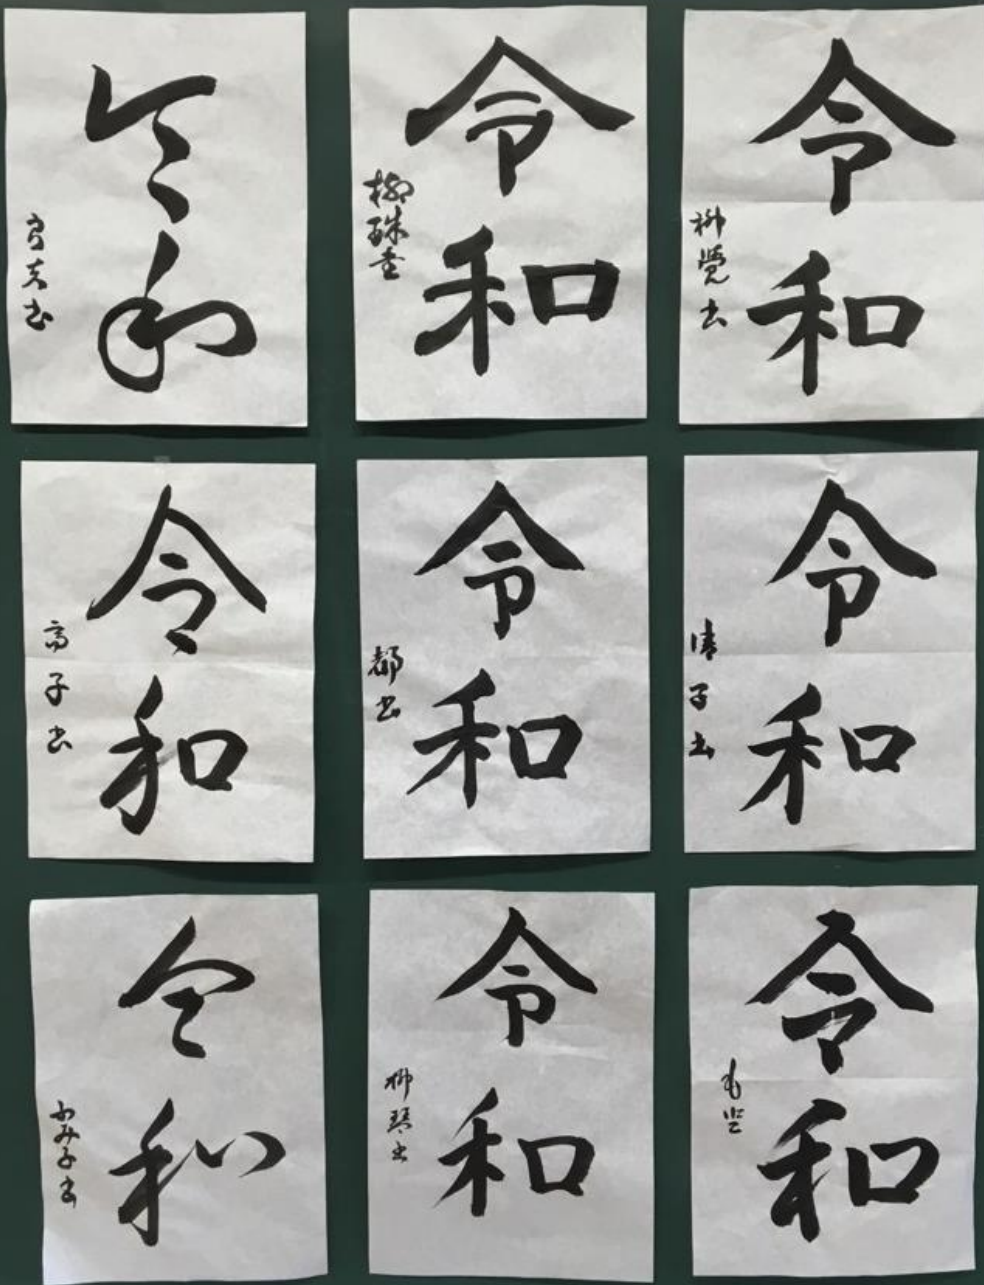 令和
令和
柳珠書
令和
柳覺書
令和
高子書
令和
都書
令和
清子書
令和
ふみ子書
令和
柳琴書
令和